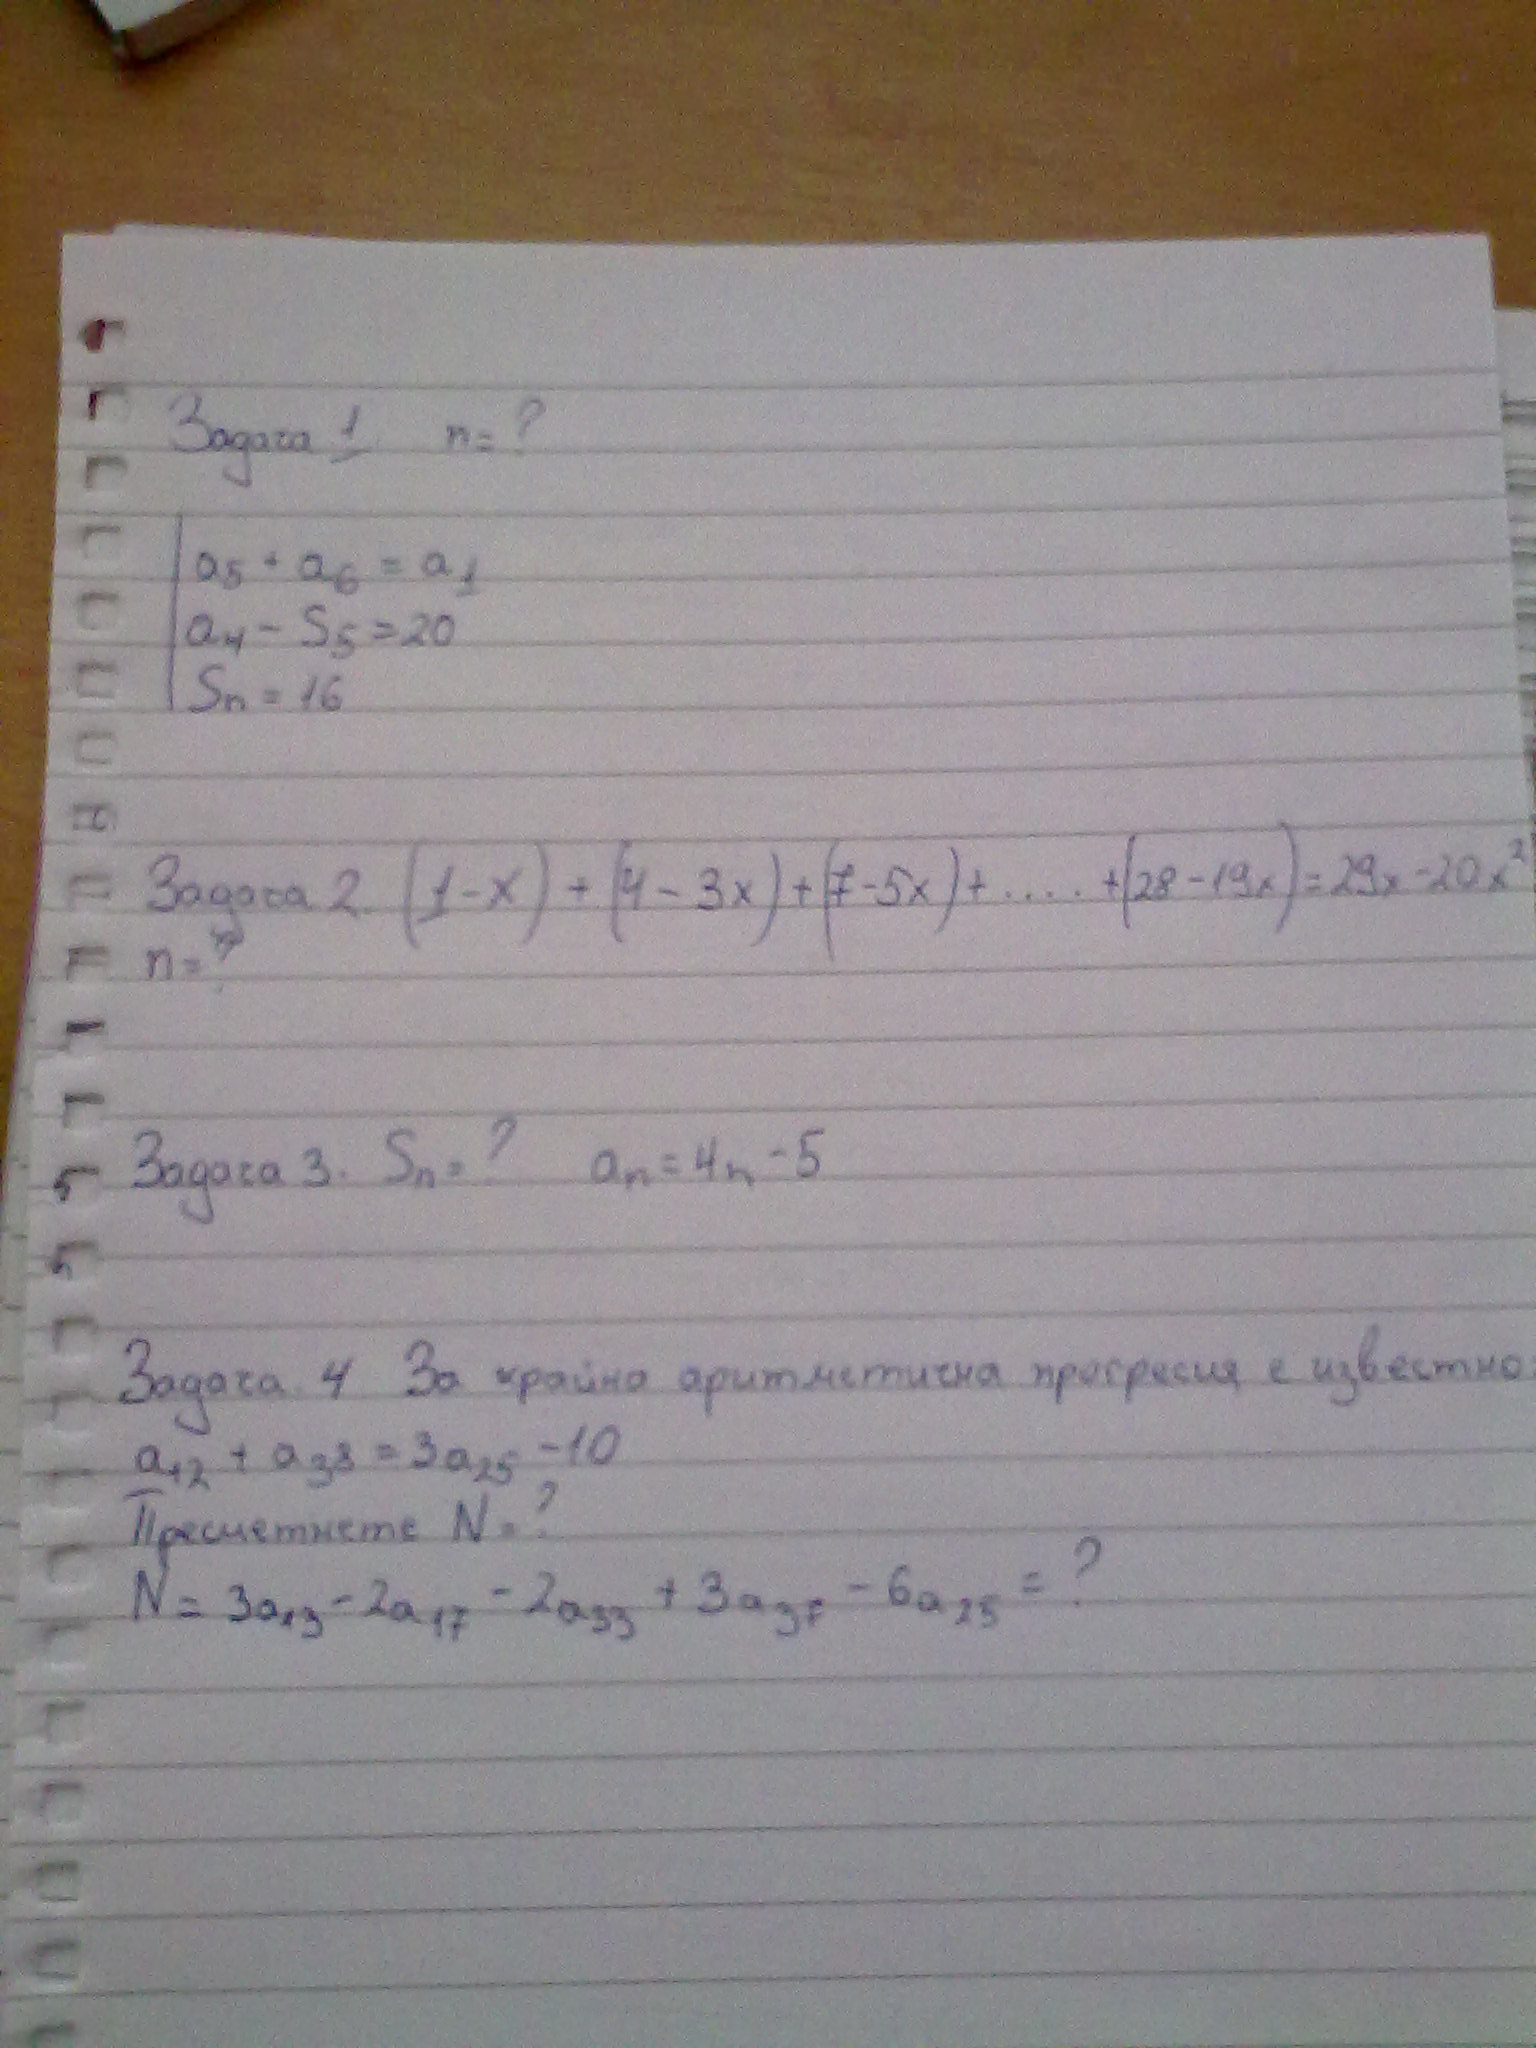 Задача 1 n=?
a₅ + a₆ = a₁
a₄ - S₅ = 20
Sₙ = 16
Задача 2. (1-x) + (4-3x) + (7-5x) + ..... + (28-19x) = 29x - 20x²
n=?
Задача 3. Sₙ = ? aₙ = 4n - 5
Задача. 4 За крайна аритметична прогресия е известно:
a₁₂ + a₃₈ = 3a₂₅ - 10
Пресметнете N = ?
N = 3a₁₃ - 2a₁₇ - 2a₃₃ + 3a₃₇ - 6a₂₅ = ?